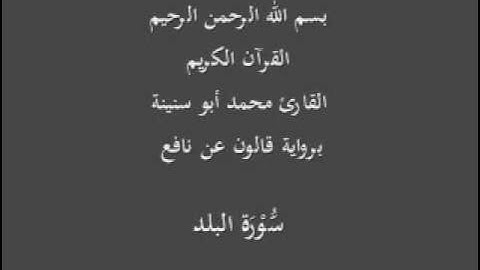 بسم الله الرحمن الرحيم
القرآن الكريم
القارئ محمد أبو سنينة
برواية قالون عن نافع
سُّوْرَة البلد